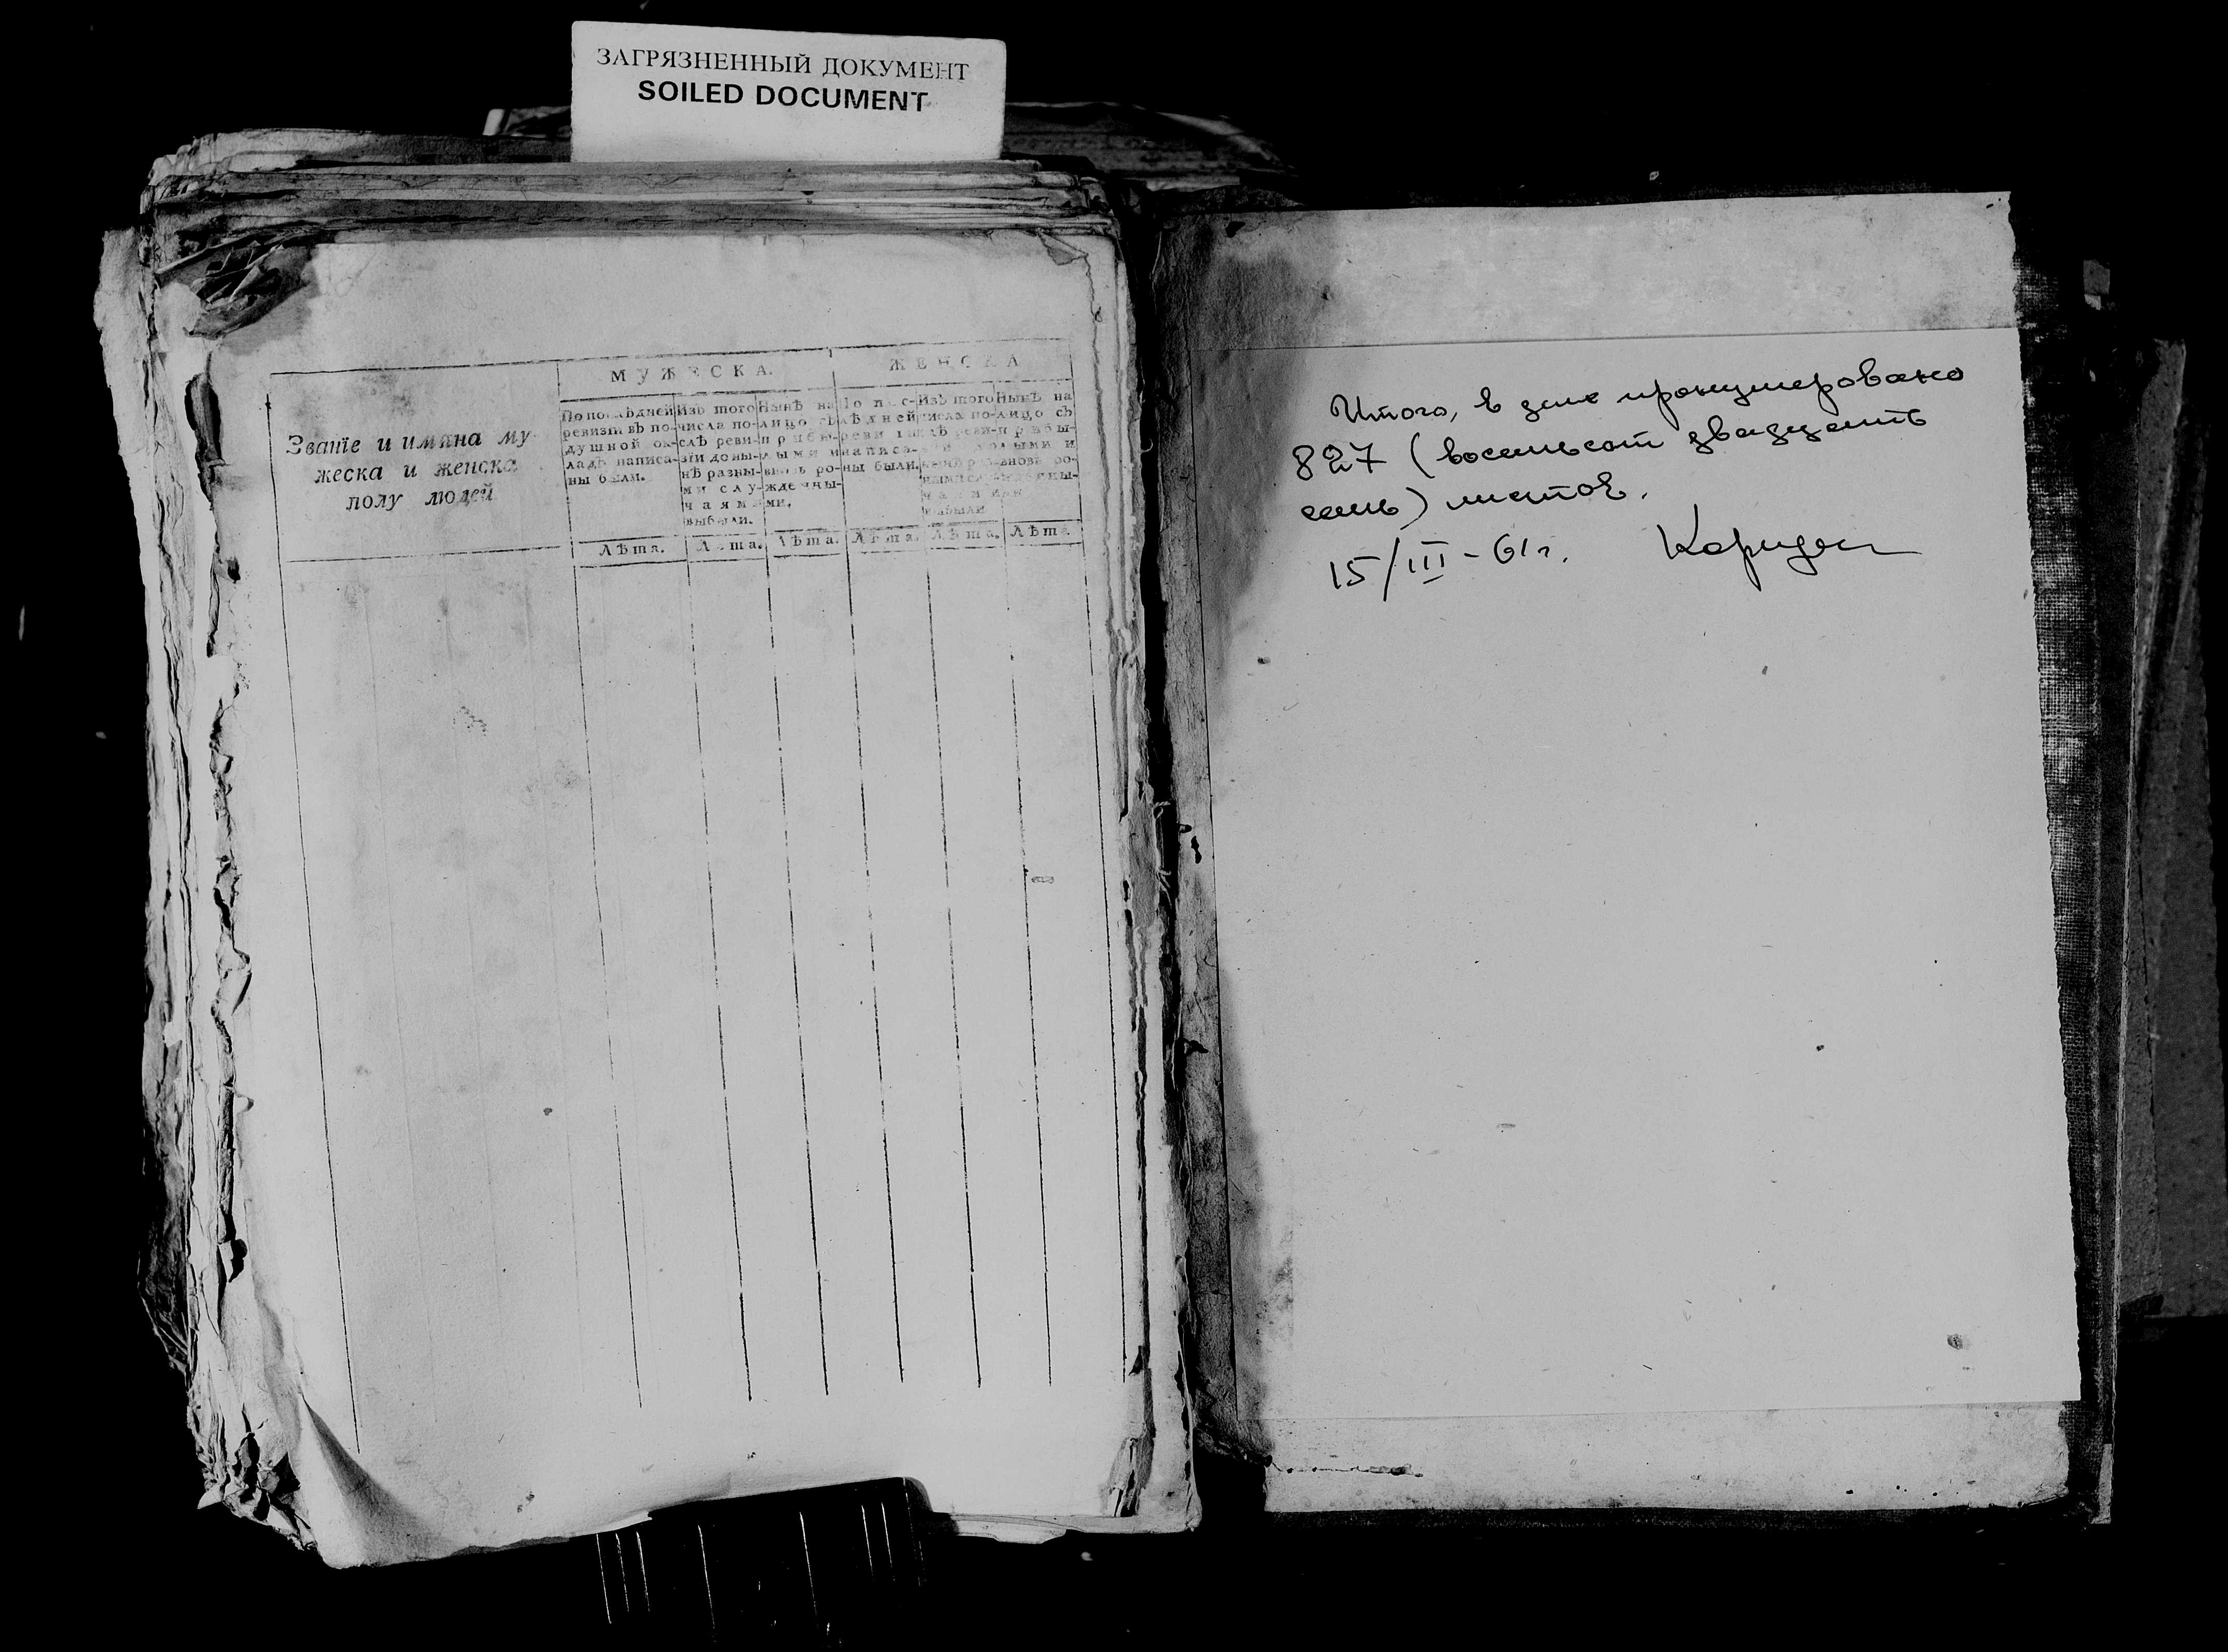 ЗАГРЯЗНЕННЫЙ ДОКУМЕНТ
SOILED DOCUMENT
МУЖЕСКА.
ЖЕНСКА
Званїе и имяна му
жеска и женска
полу людей
По послѣдней
ревизїи въ по-
душной ок-
ладъ написа-
ны были.
Изъ того
числа по-
слѣ реви-
зїи доны-
нѣ разны-
ми слу-
чаями
выбыли.
Нынѣ на
лицо съ
прибы-
лыми и
вновь ро-
жденны-
ми.
По пос-
лѣдней
реви
написа-
ны были.
Изъ того
числа по-
слѣ реви-
выбыли
Нынѣ на
лицо съ
прибы-
лыми и
вновь ро-
Лѣта. Лѣта. Лѣта. Лѣта. Лѣта. Лѣта
Итого, в деле пронумеровано
827 (восемьсот двадцать
семь) листов.
15/III-61г.